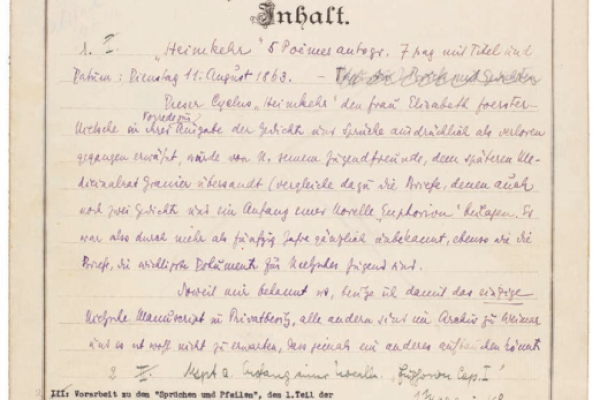 Inhalt.
1. I. „Heimkehr" 5 Poèmes autogr. 7 pag mit Titel und
Datum: Dienstag 11. August 1863. –
Dieser Cyclus „Heimkehr" den Frau Elizabeth Foerster-
Vorrede zu
Nietzsche in ihrer Ausgabe der Gedichte und Sprüche ausdrücklich als verloren
gegangen erwähnt, wurde von N. seinem Jugendfreunde, dem späteren Me-
dicinalrat Granier übersandt (vergleiche dazu die Briefe, denen auch
noch zwei Gedichte und ein Anfang einer Novelle „Euphorion" beilagen. Es
war also durch mehr als fünfzig Jahre gänzlich unbekannt, ebenso wie die
Briefe, die wichtigste Dokumente für Nietzsches Jugend sind.
Soweit mir bekannt ist, besitze ich damit das einzige
Nietzsche Manuscript in Privatbesitz, alle andern sind im Archiv zu Weimar
und es ist wohl nicht zu erwarten, dass jemals ein anderes auftauchen könnte
2 II. Mspt a. Anfang einer Novelle „Euphorion Cap. I"
III: Vorarbeit zu den "Sprüchen und Pfeilen", dem 1.Teil der